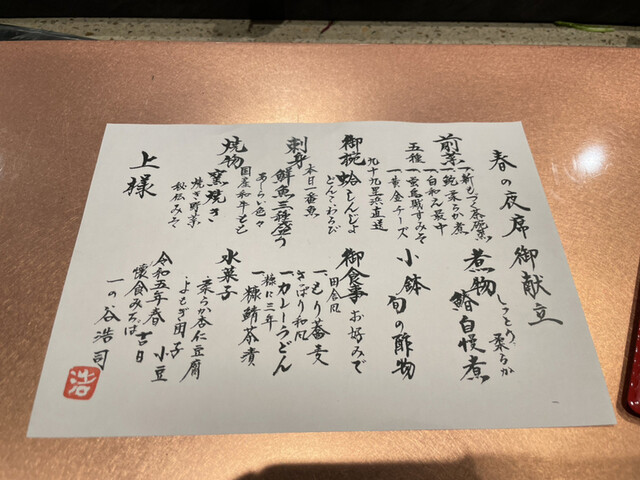 春の夜席 御献立
前菜
五種
一 新もづく茶碗蒸
一 鮑柔らか煮
一 白和え最中
一 蛍烏賊すみそ
一 黄金チーズ
九十九里浜直送
御椀 蛤しんじょ
どんこ・わらび
本日一番魚
刺身 鮮魚三種盛り
あしらい色々
国産和牛もも
焼物 窯焼き
焼き野菜
秘伝みそ
しっとり、柔らか
煮物 自慢煮
小鉢 旬の酢物
御食事 お好みで
田舎風
一、もり蕎麦
さっぱり和風
一、カレーうどん
糠に三年
一、糠鯖茶漬
水菓子
・柔らか杏仁豆腐
・よもぎ団子
小豆
令和五年春 吉日
懐食みちば
一の谷浩司
上様